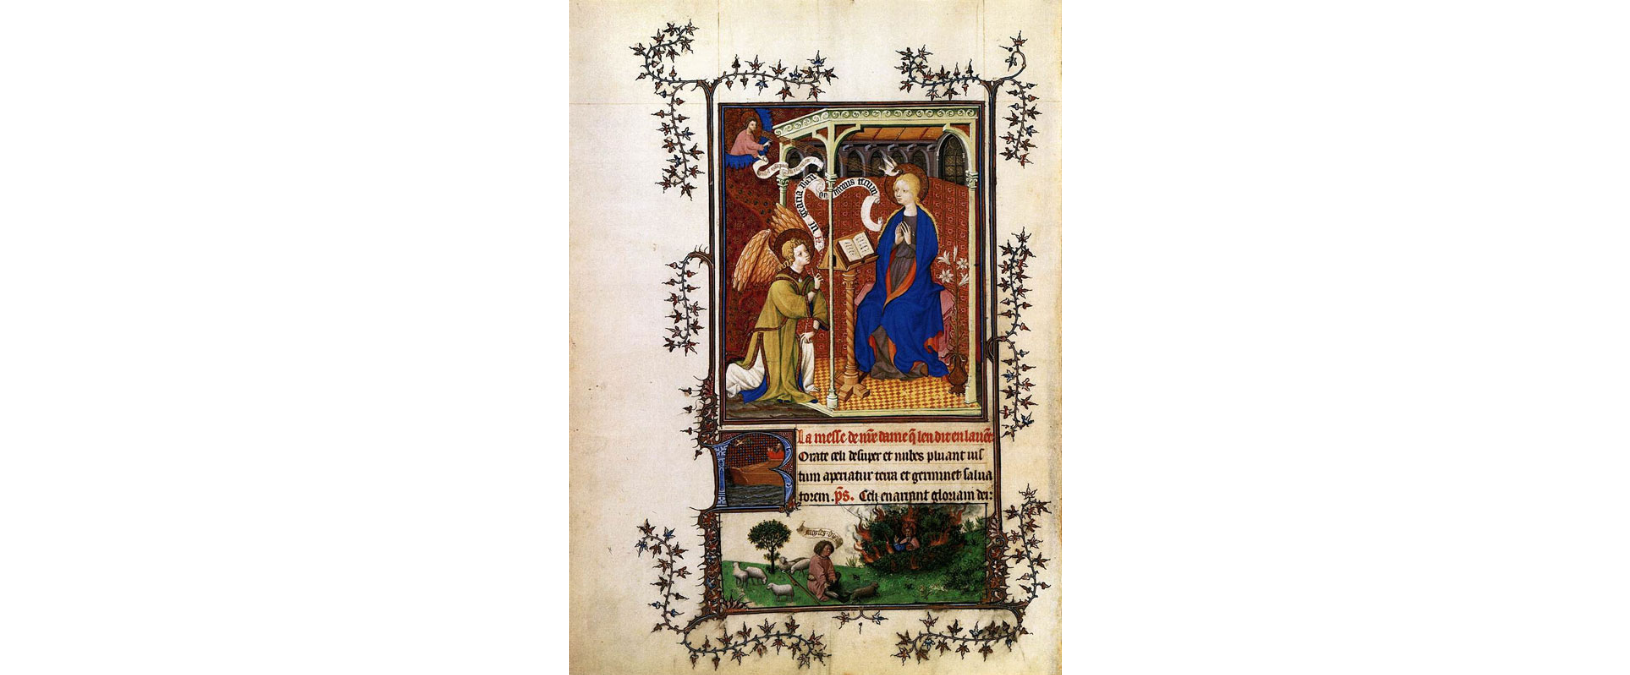 gratia plena
dominus tecum
La messe de nr̃e dame q̃ len dit en lauẽt
Rorate celi desuper et nubes pluant ius
tum aperiatur terra et germinet salua
torem. p̃s. Celi enarrant gloriam dei:
moyses